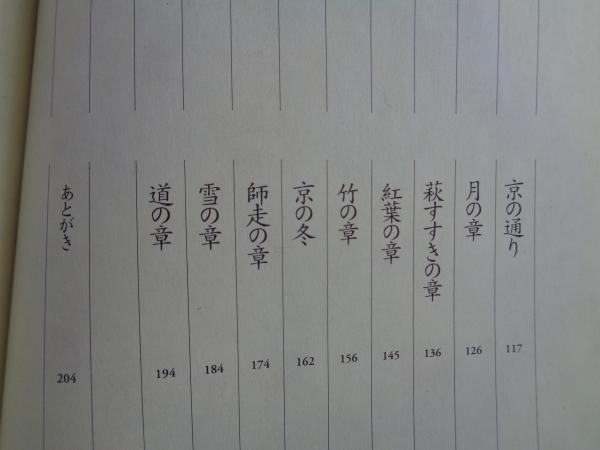 京の通り
117
月の章
126
萩すすきの章
136
紅葉の章
145
竹の章
156
京の冬
162
師走の章
174
雪の章
184
道の章
194
あとがき
204